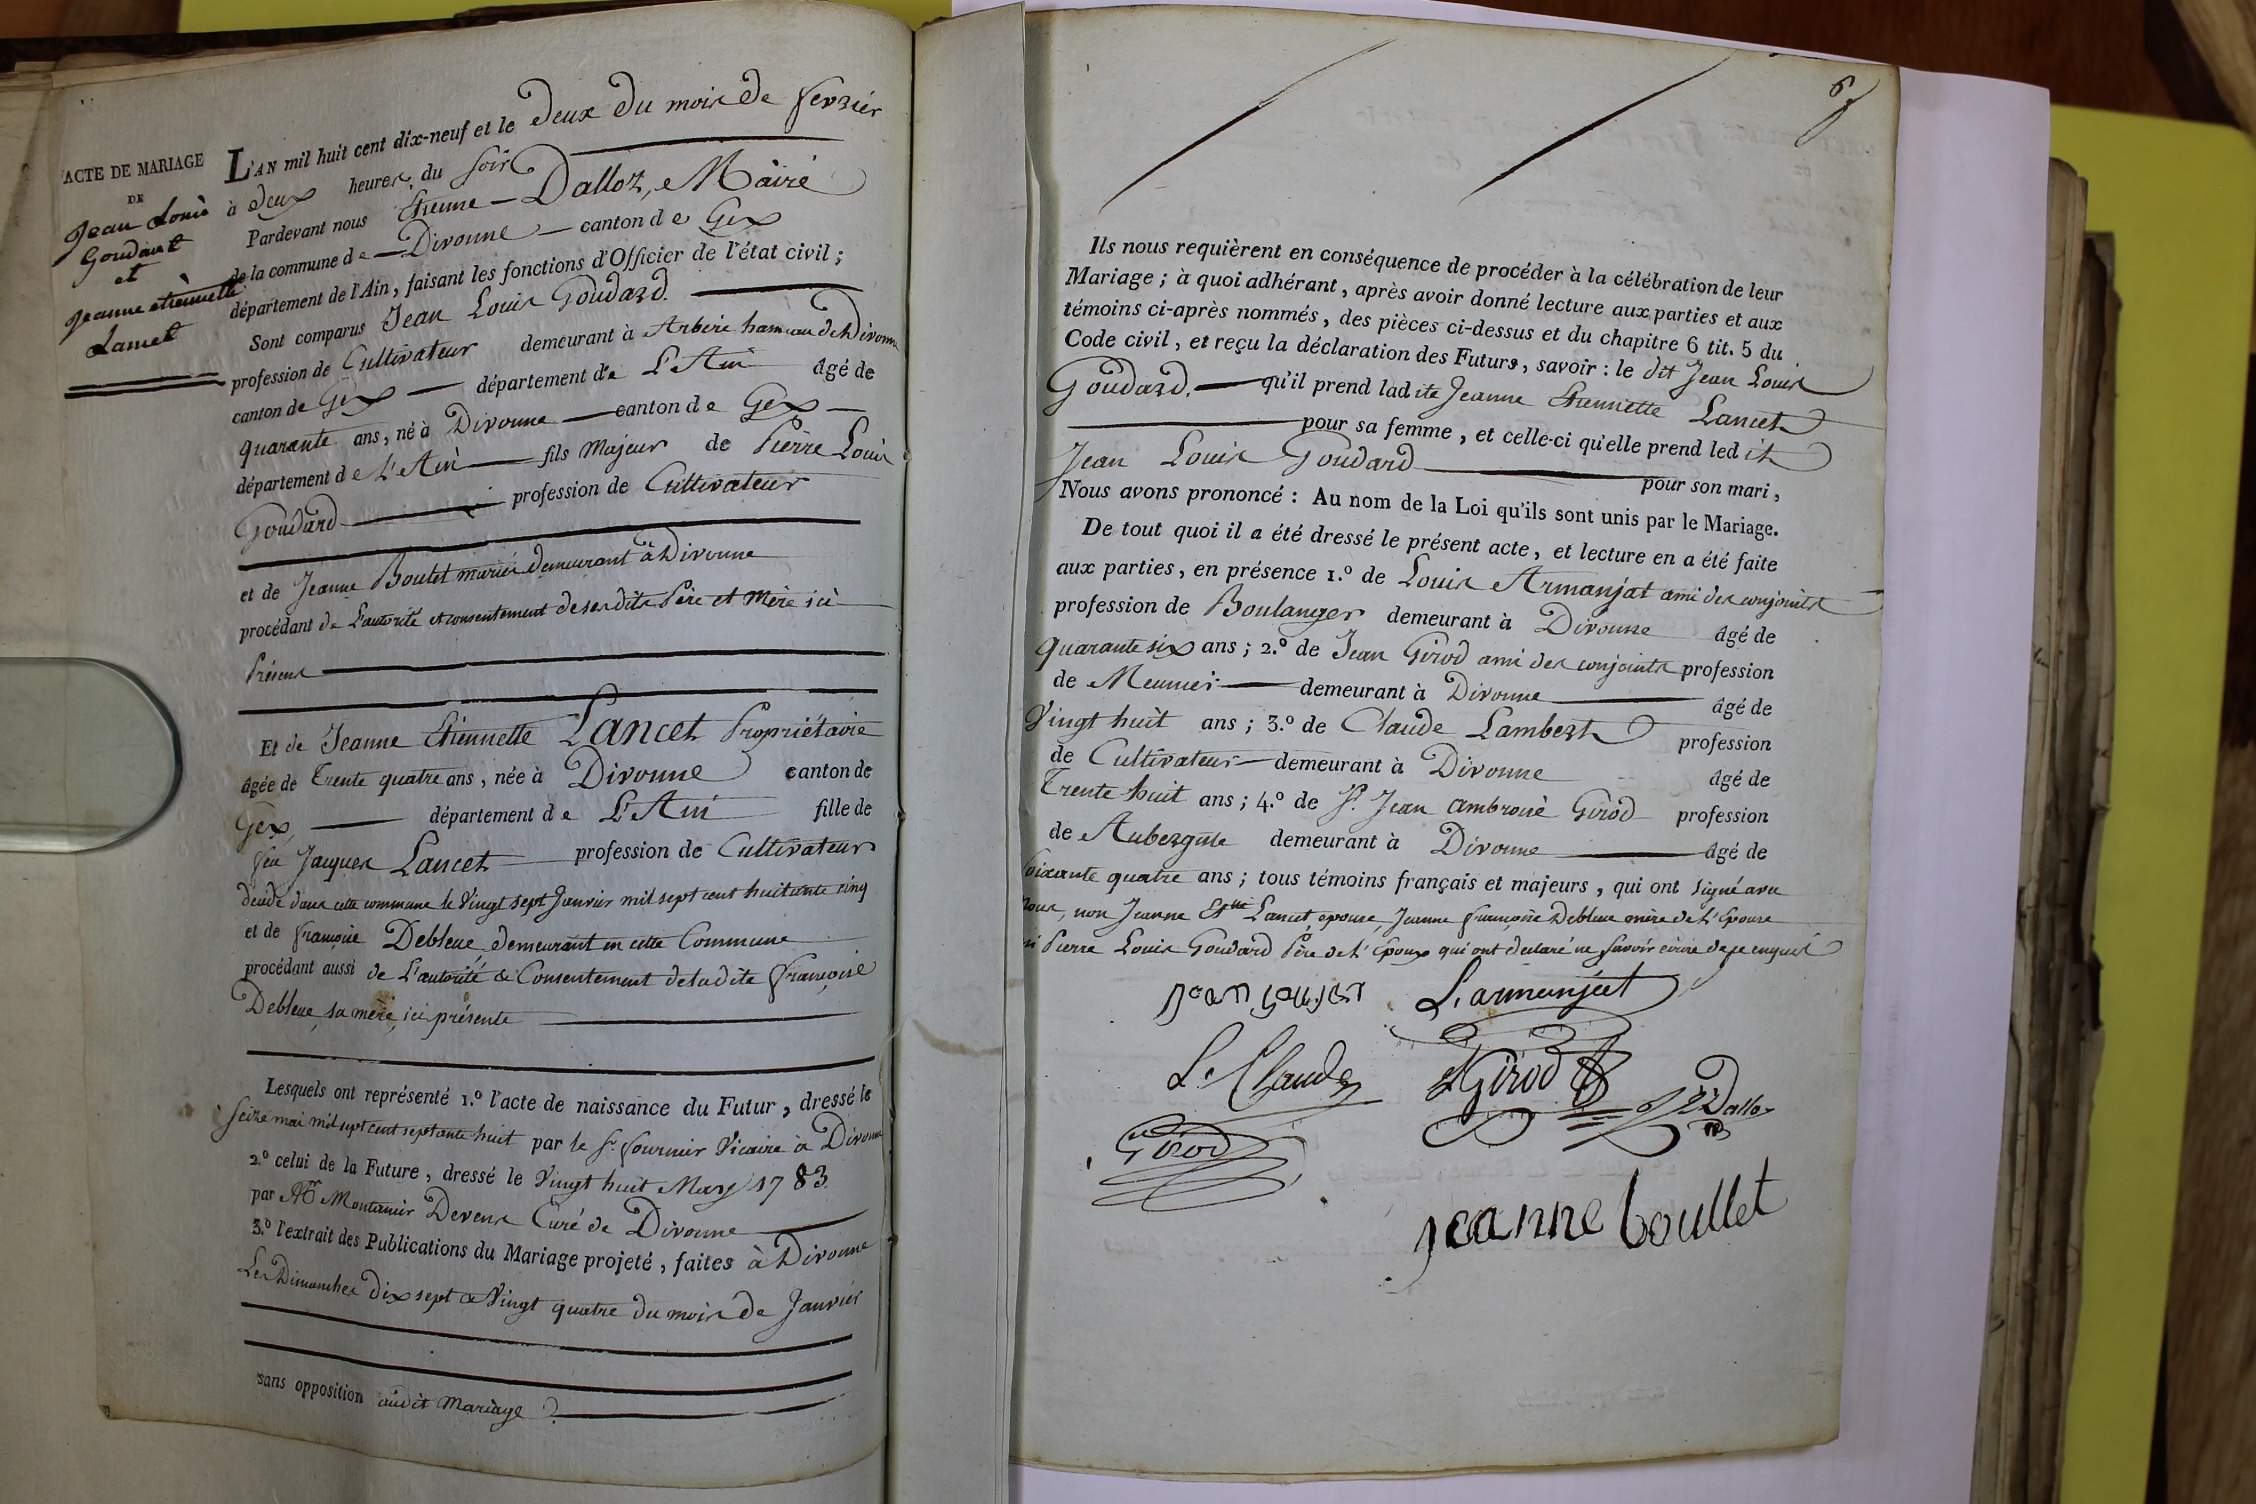 ACTE DE MARIAGE
DE
Jean Louis
Goudard
et
Jeanne etiennette
Lancet
L'AN mil huit cent dix-neuf et le deux du mois de fevrier
à deux heures du soir
Pardevant nous Etienne Dalloz, Maire
de la commune de Divonne canton de Gex
département de l'Ain, faisant les fonctions d'Officier de l'état civil;
Sont comparus Jean Louis Goudard
profession de Cultivateur demeurant à Arbère hameau de Divonne
canton de Gex département de L'Ain âgé de
quarante ans, né à Divonne canton de Gex
département de L'Ain fils Majeur de Pierre Louis
Goudard profession de Cultivateur
et de Jeanne Boulet mariés demeurant à Divonne
procédant de L'autorité et consentement de ses dits Père et Mère ici
Présens
Et de Jeanne Etiennette Lancet Propriétaire
âgée de Trente quatre ans, née à Divonne canton de
Gex, département de L'Ain fille de
feu Jacques Lancet profession de Cultivateur
décédé dans cette commune le Vingt sept Janvier mil sept cent huitante cinq
et de françoise Debleue, demeurant en cette Commune
procédant aussi de L'autorité & Consentement de ladite françoise
Debleue, sa mère, ici présente
Lesquels ont représenté 1.º l'acte de naissance du Futur, dressé le
Seize mai mil sept cent septante huit par le Sr. fournier Vicaire à Divonne
2.º celui de la Future, dressé le Vingt huit Mars 1783
par Mr Devens Curé de Divonne
3.º l'extrait des Publications du Mariage projeté, faites à Divonne
Les Dimanches Dix sept & Vingt quatre du mois de Janvier
sans opposition audit Mariage
6
Ils nous requièrent en conséquence de procéder à la célébration de leur
Mariage; à quoi adhérant, après avoir donné lecture aux parties et aux
témoins ci-après nommés, des pièces ci-dessus et du chapitre 6 tit. 5 du
Code civil, et reçu la déclaration des Futurs, savoir: le dit Jean Louis
Goudard. qu'il prend ladite Jeanne Etiennette Lancet
pour sa femme, et celle-ci qu'elle prend ledit
Jean Louis Goudard pour son mari,
Nous avons prononcé: Au nom de la Loi qu'ils sont unis par le Mariage.
De tout quoi il a été dressé le présent acte, et lecture en a été faite
aux parties, en présence 1.º de Louis Armanjat ami des conjoints
profession de Boulanger demeurant à Divonne âgé de
quarante six ans; 2.º de Jean Girod ami des conjoints profession
de Meunier demeurant à Divonne âgé de
Vingt huit ans; 3.º de Claude Lambert profession
de Cultivateur demeurant à Divonne âgé de
Trente huit ans; 4.º de Sr. Jean ambroise Girod profession
de Aubergiste demeurant à Divonne âgé de
Soixante quatre ans; tous témoins français et majeurs, qui ont signé avec
nous, non Jeanne Etnne Lancet, epouse, Jeanne françoise Debleue mère de L'Epouse
ni Pierre Louis Goudard Père de L'Epoux qui ont déclaré ne savoir écrire de ce enquis
L. armanjat
L. Claude
Girod
Dalloz
Girod
jeanne boullet